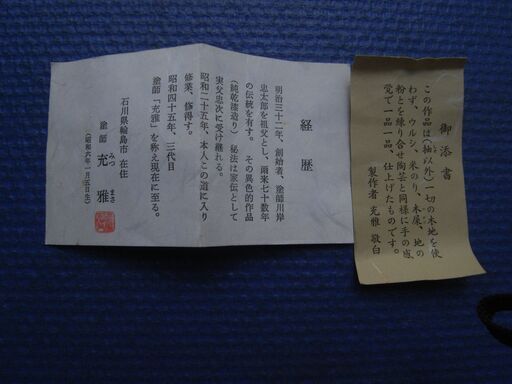 経歴
明治三十二年、創始者、塗師川岸
忠太郎を祖父とし、爾来七十数年
の伝統を有す。その異色的作品
(純乾漆造り)秘法は家伝として
実父忠次に受け継れる。
昭和二十五年、本人この道に入り
修業、修得す。
昭和四十五年、三代目
塗師「充雅」を称え現在に至る。
石川県輪島市在住
塗師 充雅
みつ まさ
(昭和六年一月五日生)
御添書
この作品は(袖以外)一切の木地を使
わず、ウルシ、米のり、木屎、地の
粉とを練り合せ陶芸と同様に手の感
覚で一品一品、仕上げたものです。
製作者 充雅 敬白